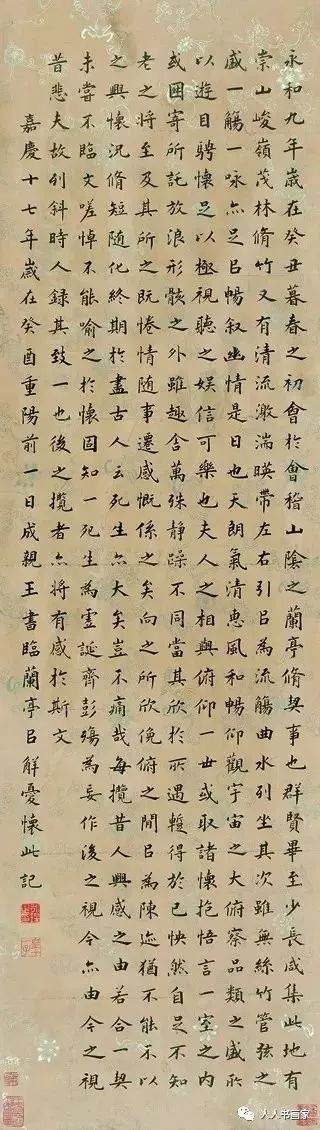 永和九年歲在癸丑暮春之初會於會稽山陰之蘭亭脩契事也群賢畢至少長咸集此地有
崇山峻嶺茂林脩竹又有清流激湍暎帶左右引㠯為流觴曲水列坐其次雖無絲竹管弦之
盛一觴一咏亦足㠯暢叙幽情是日也天朗氣清惠風和暢仰觀宇宙之大俯察品類之盛所
以遊目騁懷足以極視聽之娛信可樂也夫人之相與俯仰一世或取諸懷抱悟言一室之內
或因寄所託放浪形骸之外雖趣舍萬殊靜躁不同當其欣於所遇暫得於己怏然自足不知
老之將至及其所之既惓情隨事遷感慨係之矣向之所欣俛俯之閒㠯為陳迹猶不能不以
之興懷況脩短隨化終期於盡古人云死生亦大矣豈不痛哉每攬昔人興感之由若合一契
未嘗不臨文嗟悼不能喻之於懷固知一死生為虛誕齊彭殤為妄作後之視今亦由今之視
昔悲夫故列斜時人録其致一也後之攬者亦將有感於斯文
嘉慶十七年歲在癸酉重陽前一日成親王書臨蘭亭㠯解憂懷此記
人人书画家